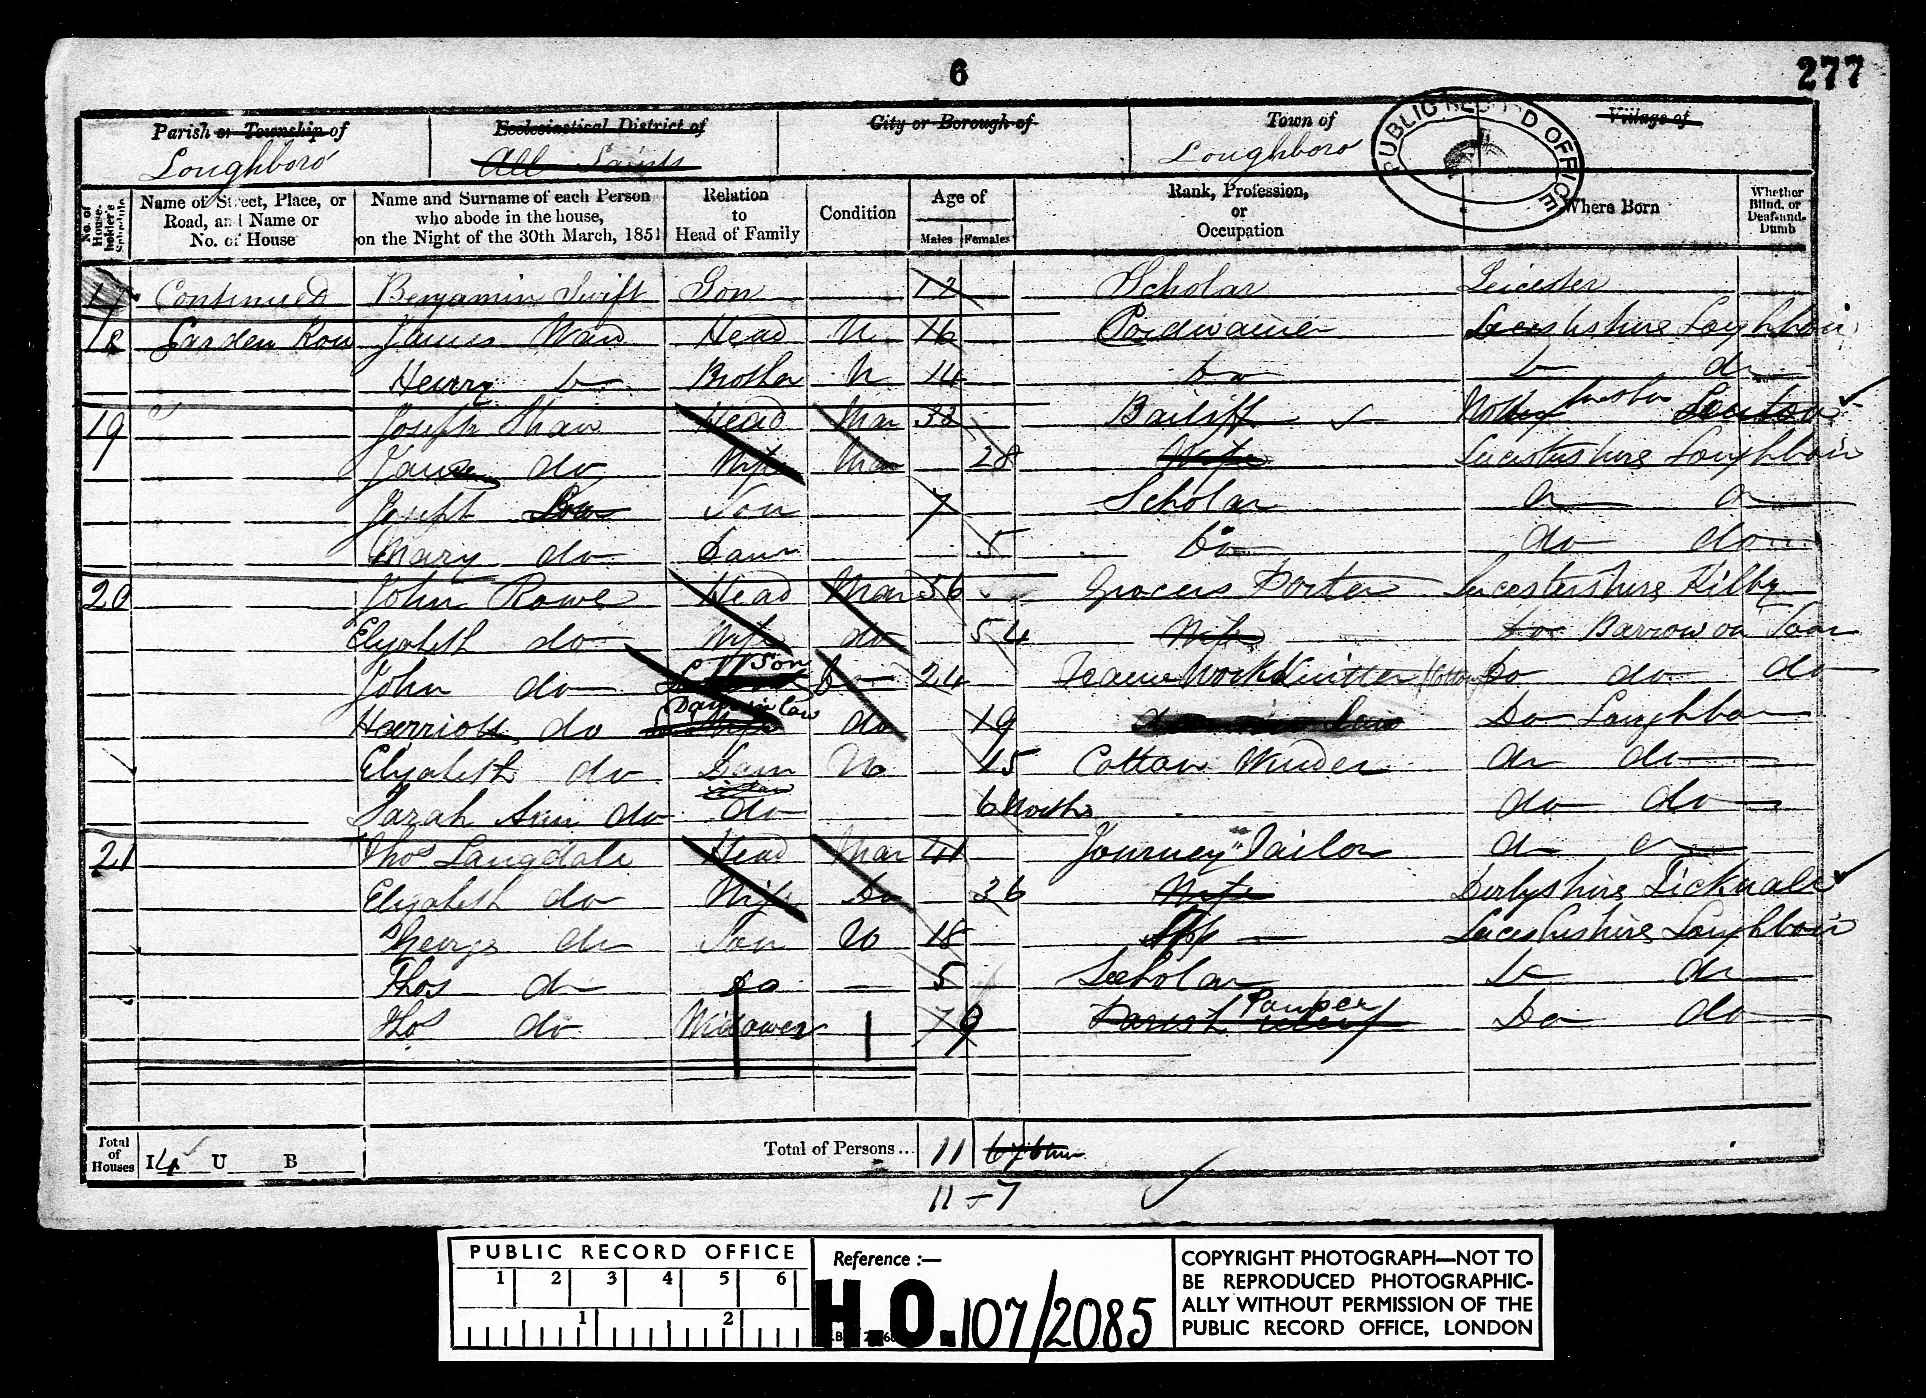 6
277
Parish or Township of
Ecclesiastical District of
City or Borough of
Town of
Village of
Loughboro
All Saints
Loughboro
PUBLIC RECORD OFFICE
No. of House-holder's Schedule
Name of Street, Place, or Road, and Name or No. of House
Name and Surname of each Person who abode in the house, on the Night of the 30th March, 1851
Relation to Head of Family
Condition
Age of
Males Females
Rank, Profession, or Occupation
Where Born
Whether Blind, or Deaf-and-Dumb
17 Continued Benjamin Swift Son 12 Scholar Leicester
18 Garden Row James Ward Head U 16 Cordwainer Leicestershire Loughboro
Henry Do Brother U 14 Do Do do
19 Joseph Shaw Head Mar 32 Bailiff
Jane do Wife Mar 28 Wife Leicestershire Loughboro
Joseph Son 7 Scholar do do
Mary do Daur 5 Do do do
20 John Rowe Head Mar 56 Grocers Porter Leicestershire Kilby
Elizabeth do Wife do 54 Wife Do Barrow on Soar
John do Son Do 24 Frame Work Knitter Cotton Do do do
Harriott do Daur in law do 19 Do Loughbor
Elizabeth do Daur U 15 Cotton Winder do do
Sarah Ann do do 6 Months do do
21 Thos Langdale Head Mar 41 Journey Tailor do do
Elizabeth do Wife Do 36 Wife Derbyshire Ticknall
George do Son U 18 App Leicestershire Loughboro
Thos do Do 5 Scholar Do do
Thos do Widower 79 Parish relief Pauper Do do
Total of Houses I 4 U B Total of Persons... 11
11-7
PUBLIC RECORD OFFICE
1 2 3 4 5 6
1 2
Reference :—
H.O. 107/2085
COPYRIGHT PHOTOGRAPH—NOT TO
BE REPRODUCED PHOTOGRAPHIC-
ALLY WITHOUT PERMISSION OF THE
PUBLIC RECORD OFFICE, LONDON